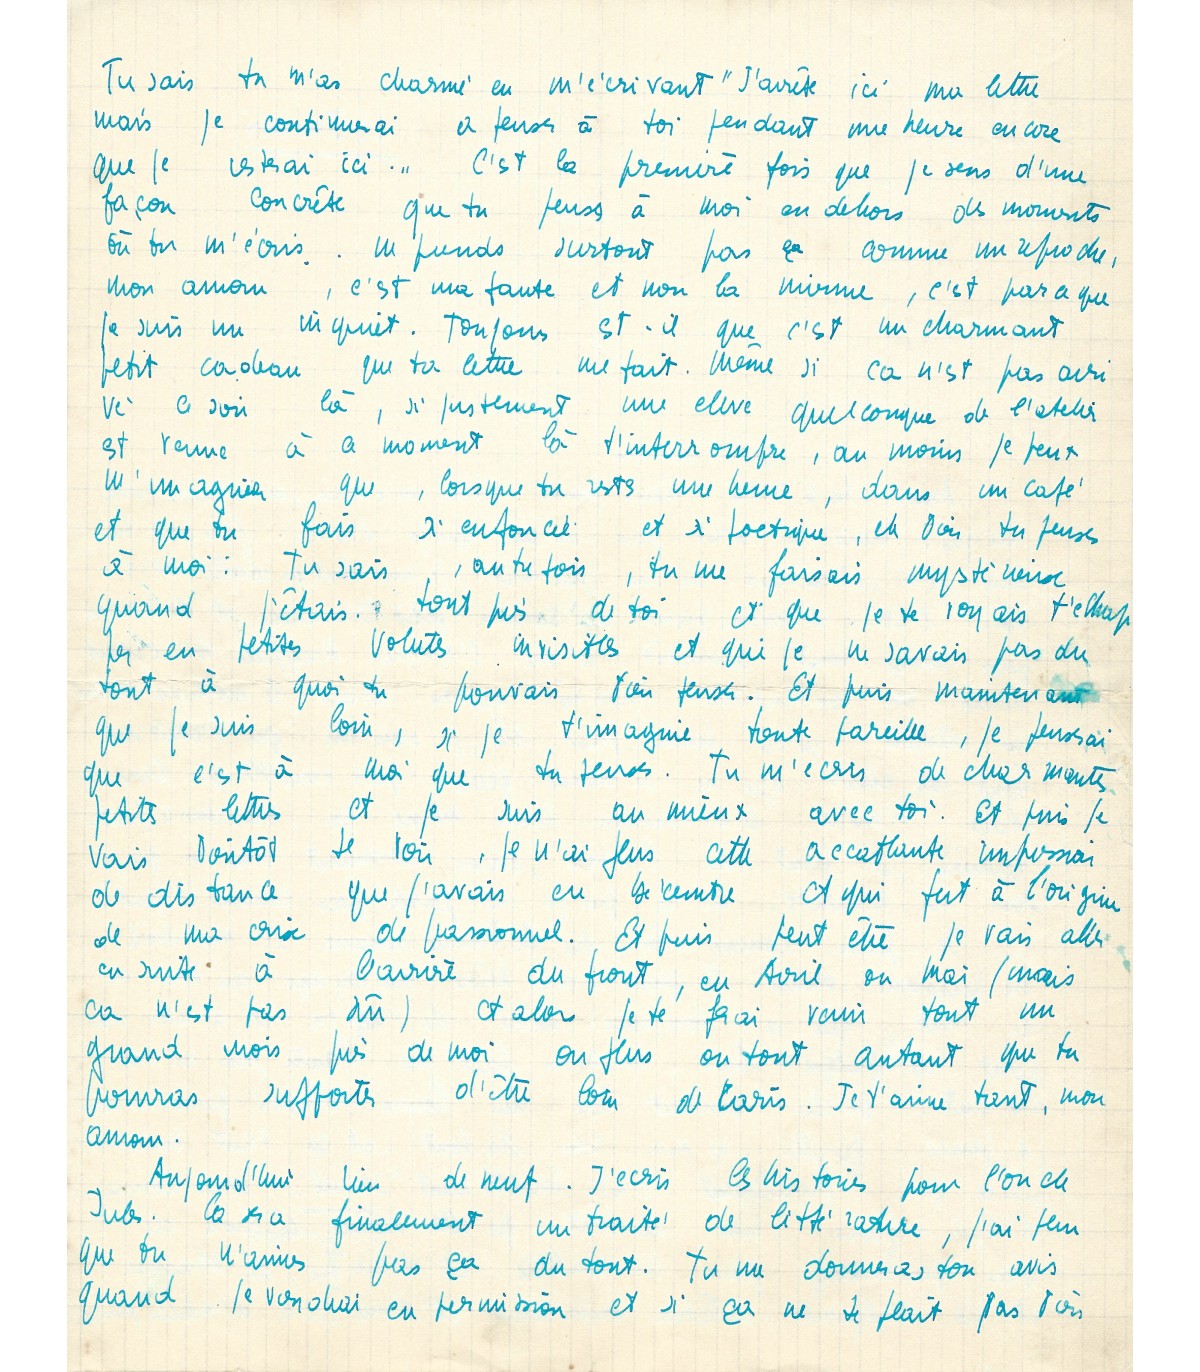 Tu sais tu m'as charmé en m'écrivant "J'arrête ici ma lettre
mais je continuerai a penser à toi pendant une heure encore
que je resterai ici.." C'est la première fois que je sens d'une
façon concrète que tu penses à moi en dehors des moments
où tu m'écris. Ne prends surtout pas ça comme un reproche,
mon amour, c'est ma faute et non la mienne, c'est parce que
je suis un inquiet. Toujours est-il que c'est un charmant
petit cadeau que ta lettre me fait. Même si ca n'est pas arri
vé ce soir là, si justement une eleve quelconque de l'atelier
est venue à ce moment là t'interrompre, au moins je peux
m'imaginer que, lorsque tu restes une heure, dans un café
et que tu fais si enfoncée et si poetique, eh bien tu penses
à moi: Tu sais, autrefois, tu me faisais mystérieuse
quand j'étais tout près de toi et que je te voyais t'echap
per en petites volutes invisibles et que je ne savais pas du
tout à quoi tu pouvais bien penser. Et puis maintenant
que je suis loin, si je t'imagine toute pareille, je penserai
que c'est à moi que tu penses. Tu m'ecris de charmantes
petites lettres et je suis au mieux avec toi. Et puis je
vais bientôt te voir, je n'ai plus cette accablante impression
de distance que j'avais en Décembre et qui fut à l'origine
de ma crise de passionnel. Et puis peut être je vais aller
ensuite à l'arrière du front, en Avril ou Mai (mais
ca n'est pas sûr) et alors je te ferai venir tout un
grand mois près de moi ou plus ou tout autant que tu
pourras supporter d'être loin de Paris. Je t'aime tant, mon
amour.
Aujourd'hui rien de neuf. J'ecris les histoires pour l'oncle
Jules. Ca sera finalement un traité de littérature, j'ai peur
que tu n'aimes pas ça du tout. Tu me donneras ton avis
quand je viendrai en permission et si ça ne te plaît pas bien